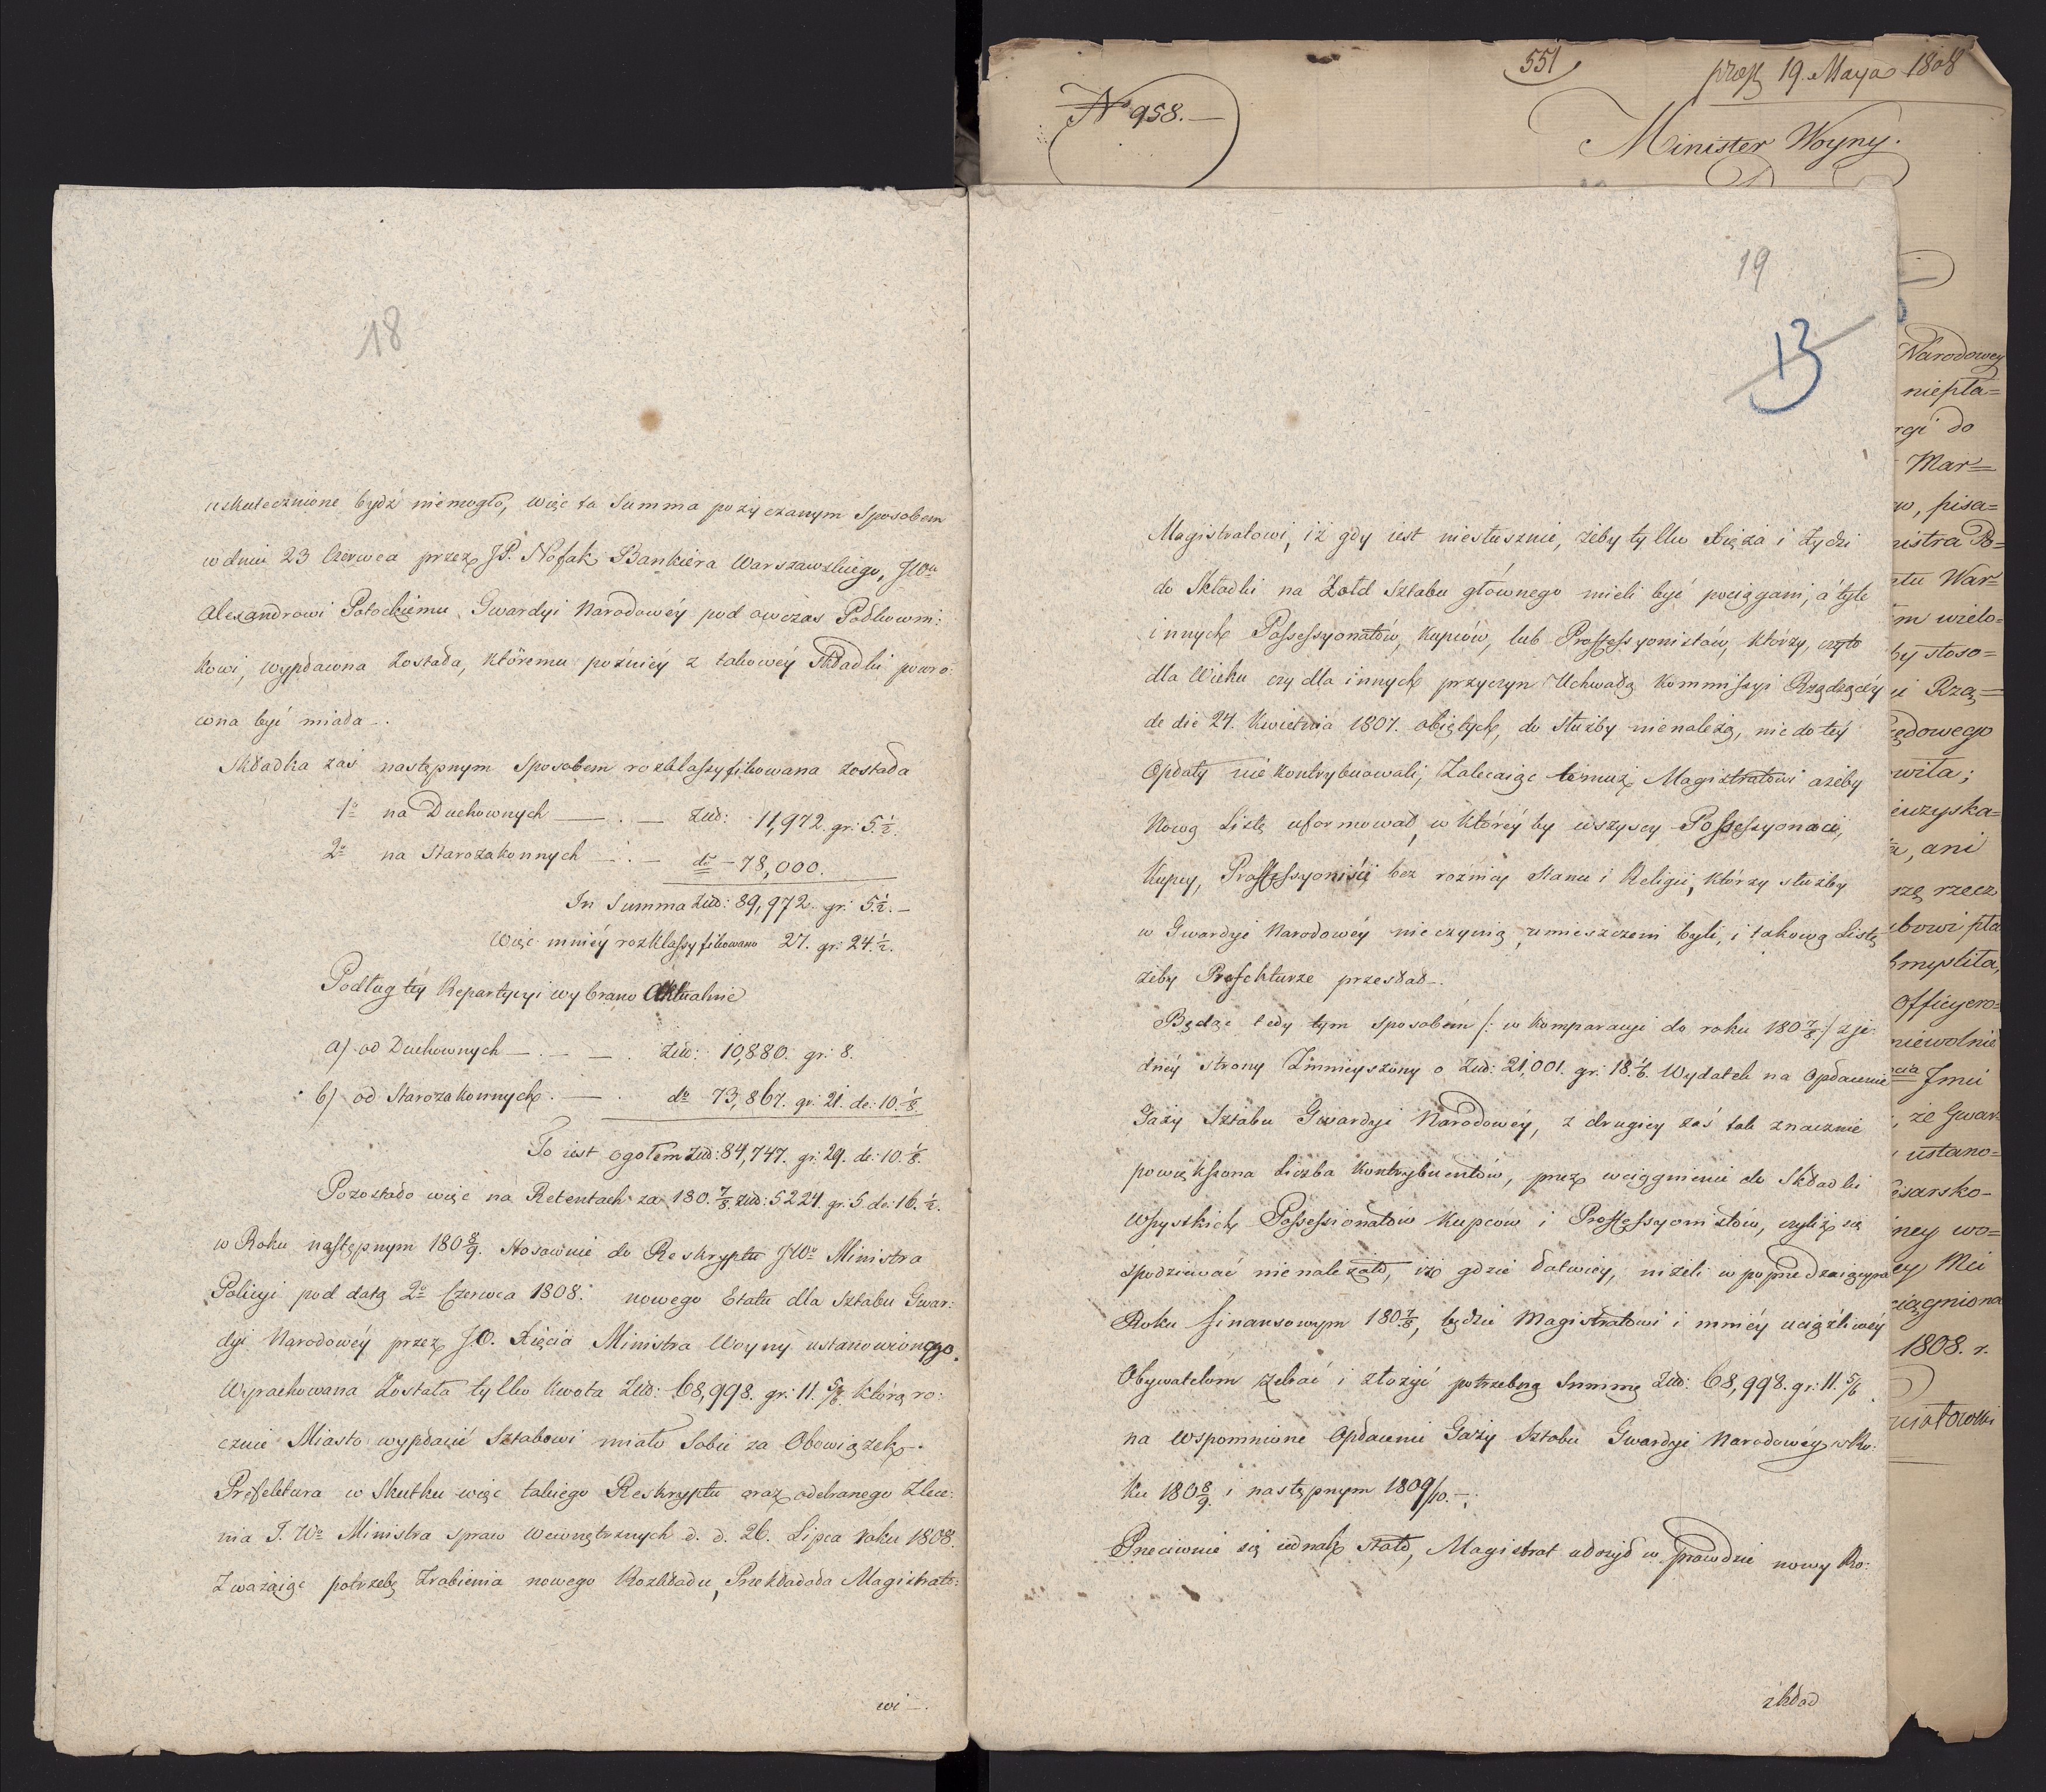 18
uskutecznione bydź niemogło, więc ta Summa pożyczanym Sposobem
w dniu 23 Czerwca przez JP. Nofak Bankiera Warszawskiego, JWu
Alexandrowi Potockiemu Gwardyi Narodowéy pod owczas Podłkowni:
kowi, wypłacona Została, któremu poźniéy z takowéy Składki powro
cona być miała -.
Składka zaś następnym Sposobem rozklassyfikowana została
1o na Duchownych — . — Złł: 11,972. gr: 5.½.
2o na Starozakonnych — . — do — 78,000.
In Summa Złł: 89,972. gr: 5.½. —
Więc mniéy rozklassyfikowano 27. gr: 24.½.
Podług téy Repartycyi wybrano Aktualnie
a) od Duchownych — . — . Złł: 10,880. gr: 8.
b) od Starozakonnych . — . do 73,867. gr: 21. de: 10.⅛.
To iest ogołem Złł: 84,747. gr: 29. de: 10.⅛.
Pozostało więc na Retentach za 180.7/8. Złł: 5224. gr: 5. de: 16.½.
w Roku następnym 180 8/9. Stosownie do Reskryptu JWo Ministra
Policyi pod datą 2o Czerwca 1808. nowego Etatu dla Sztabu Gwar:
dyi Narodowéy przez J.O. Xięcia Ministra Woyny ustanowionego.
Wyrachowana Została tylko kwota Złł: 68,998. gr: 11. 5/6. którą ro:
cznie Miasto wypłacić Sztabowi miało Sobie za Obowiązek -.
Prefektura w Skutku więc takiego Reskryptu oraz odebranego Zlece:
nia J. Wo Ministra spraw Wewnętrznych d. d. 26. Lipca roku 1808.
Zważaiąc potrzebę Zrobienia nowego Rozkładu, Przekładała Magistrato:
wi —.
19
13
Magistratowi, iż gdy iest niesłusznie, żeby tylko Xięża i Żydzi
do Składki na Żołd Sztabu głównego mieli być pociągani, á tyle
innych Possessyonatów, kupców, lub Professyonistów, którzy, czyto
dla Wieku czy dla innych przyczyn Uchwałą Kommissyi Rządzącéy
de die 27. Kwietnia 1807. obiętych, do służby nienależą, nic do téy
Opłaty nie kontrybuowali; Zalecaiąc temuż Magistratowi ażeby
Nową Listę uformował, w któréy by wszyscy Possessyonaci,
Kupcy, Professyoniści bez rożnicy Stanu i Religii, którzy służby
w Gwardyi Narodowéy nie czynią, umieszczeni byli, i takową Listę
żeby Prefekturze przesłał -.
Będąc tedy tym sposobem /: w komparacyi do roku 180 7/8 :/ z je:
dnéy strony Zmnieyszony o Złł: 21,001. gr: 18.1/6. Wydatek na Opłacenie
Gaży Sztabu Gwardyi Narodowéy, z drugiey zaś tak znacznie
powiększona Liczba Kontrybuentów, przez wciągnienie do Składki
Wszystkich Possessionatów Kupców i Professyonistów, czyliż się
spodziewać nienależało, iż gdzie łatwiey, niżeli w poprzedzaiącym
Roku finansowym 180 7/8, będzie Magistratowi i mniéy uciążliwéy
Obywatelóm zebrać i złożyć potrzebną Summę Złł: 68,998. gr: 11. 5/6
na Wspomnione Opłacenie Gaży Sztabu Gwardyi Narodowéy w Ro:
ku 180 8/9. i następnym 1809/10. —.
Przeciwnie się iednak stało, Magistrat ułożył w prawdzie nowy Ro:
zkład
No 958. —
551
19. Maya 1808
Minister Woyny.
Narodowey
niepła=
do
Mar=
, pisa=
War=
wielo=
stoso=
Rzą=
, ani
rzecz
Officyero=
Jmci
, że Gwar=
ustano=
wo=
Mci
1808. r.